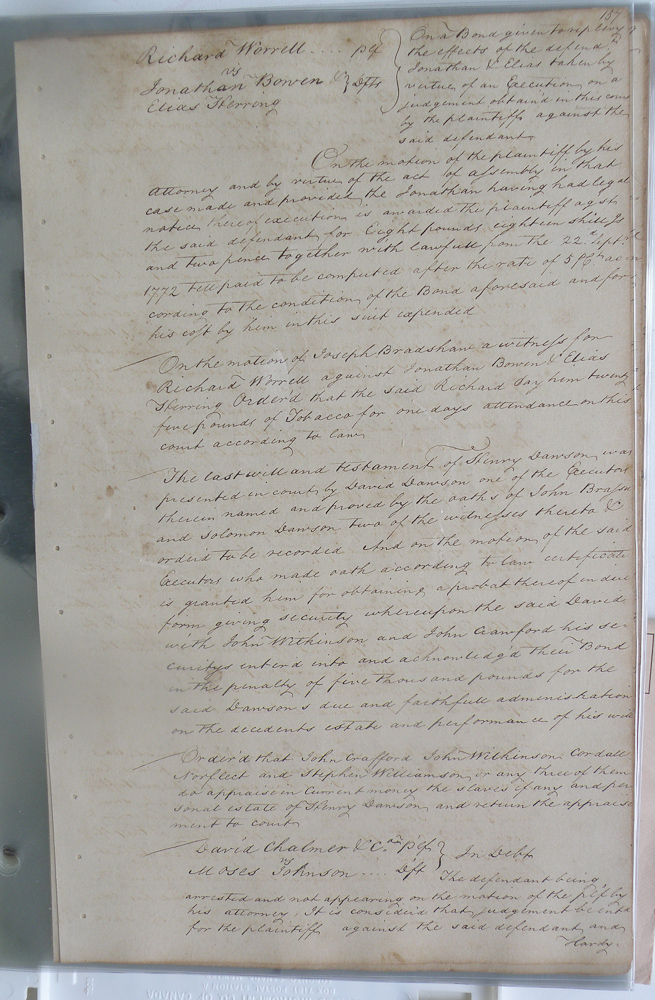 157
Richard Worrell .... plf
vs
Jonathan Bowen & } Dfts
Elias Herring
On a Bond given to replevy
the effects of the defend.ts
Jonathan & Elias taken by
virtue of an Execution on a
Judgement obtain'd in this cour
by the plaintiff against the
said defendant
On the motion of the plaintiff by his
Attorney and by virtue of the act of assembly in that
case made and provided the Jonathan having had legal
notice thereof execution is awarded the plaintiff agst
the said defendant for Eight pounds eighteen shill.gs
and two pence together with lawfull from the 22.d Sept.r
1772 till paid to be computed after the rate of 5 P C.t ac
cording to the condition of the Bond aforesaid and for
his cost by him in this suit expended
On the motion of Joseph Bradshaw a witness for
Richard Worrell against Jonathan Bowen & Elias
Herring Order'd that the said Richard pay him twenty
five pounds of Tobacco for one days attendance on this
court according to law
The last will and testament of Henry Dawson was
presented in court by David Dawson one of the Executors
therein named and proved by the oaths of John Brassu
and Solomon Dawson two of the witnesses thereto &
ordeid to be recorded And on the motion of the said
Executors who made oath according to law certificate
is granted him for obtaining a probat thereof in due
form giving security whereupon the said David
with John Wilkinson and John Crawford his se
curitys enter'd into and acknowledg'd their Bond
in the penalty of five thousand pounds for the
said Dawson's due and faithfull administration
on the decedents estate and performance of his will
Order'd that John Crafford John Wilkinson Cordall
Norfleet and Stephen Williamson or any three of them
do appraise in Current money the slaves if any and per
sonal estate of Henry Dawson and return the appraise
ment to court
David Chalmer & C.o plf
vs
Moses Johnson .... Dft
} In Debt
The defendant being
arrested and not appearing on the motion of the plf by
his attorney, It is consider'd that judgement be entd
for the plaintiff against the said defendant and
Hardy.